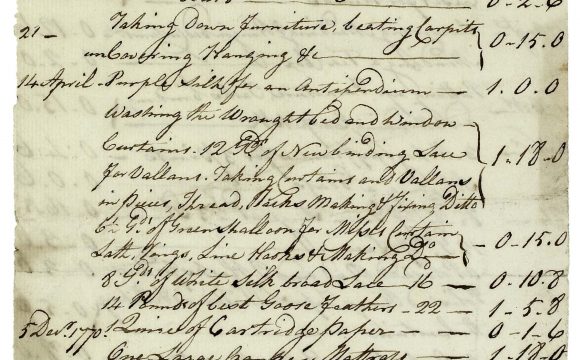 0-2-6
21- Taking Down furniture, beating Carpits
unCovering Hanging &c 0-15.0
14 April. Purple Silk for an Antipendium 1.0.0
Washing the Wrought bed and window
Curtains. 12 Yds of New binding Lace
for Vallans. Taking Curtains and Vallans 1-18-0
in Pieces, Thread, Hooks Making & fixing Ditto
6½ Yds of Green Shalloon for Curtain
Lath, Rings, Line Hooks & Making Do 0-15.0
8 Yds of White Silk broad Lace 16 0-10.8
14 Pounds of best Goose feathers 22 1-5-8
5 Decr. 1770 of Cartridge paper 0-1-6
One Large Mattrass 1-18-0